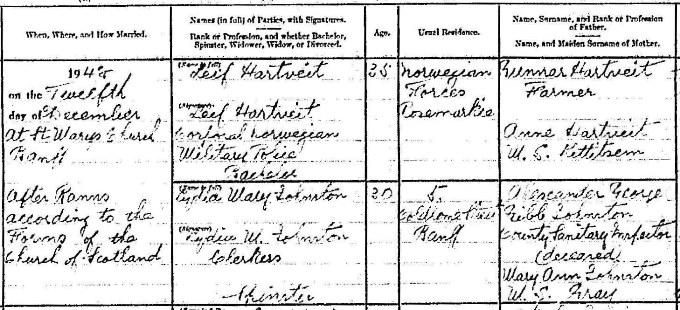 When, Where, and How Married.
Names (in full) of Parties, with Signatures.
Rank or Profession, and whether Bachelor, Spinster, Widower, Widow, or Divorced.
Age.
Usual Residence.
Name, Surname, and Rank or Profession of Father.
Name, and Maiden Surname of Mother.
1945
on the Twelfth
day of December
At St Marys Church
Banff
After Banns
according to the
Forms of the
Church of Scotland
Leif Hartveit
(Signature)
Leif Hartveit
Corporal Norwegian
Military Police
Bachelor
25
Norwegian
Forces
Rosemarkie
Gunnar Hartveit
Farmer
Anne Hartveit
M. S.
Lydia Mary Johnston
(Signature)
Lydia M. Johnston
Clerkess
Spinster
30
5
Banff
Alexander George
Gibb Johnston
County Sanitary Inspector
(deceased)
Mary Ann Johnston
M. S. Gray